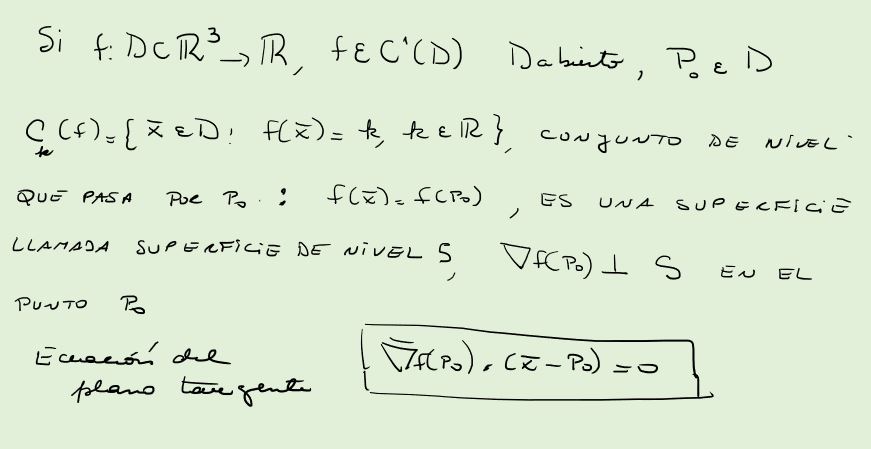 Si f: D⊂ℝ³→ℝ, f∈C¹(D) D abierto, P₀ ∈ D
Cₖ(f)={ x̄ ∈ D: f(x̄)= k, k∈ℝ}, CONJUNTO DE NIVEL
QUE PASA POR P₀ : f(x̄)=f(P₀) , ES UNA SUPERFICIE
LLAMADA SUPERFICIE DE NIVEL S, ∇f(P₀) ⊥ S EN EL
PUNTO P₀
Ecuación del
plano tangente
∇̄f(P₀) . (x̄ − P₀) = 0